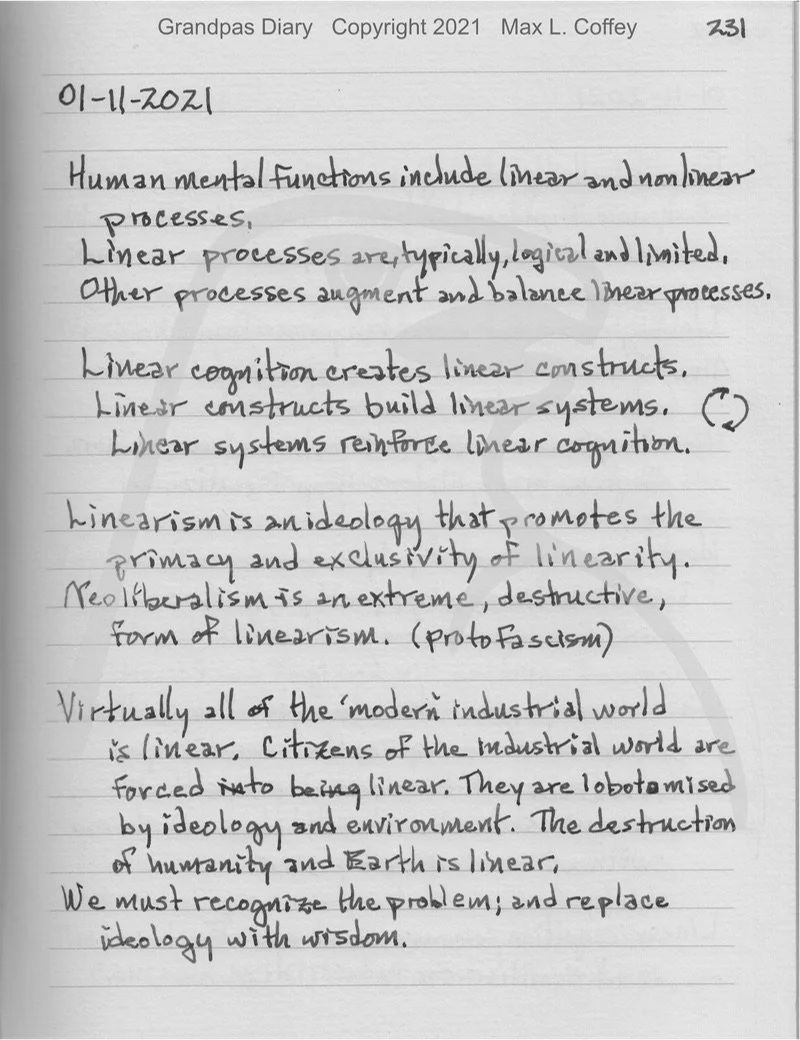 Grandpas Diary Copyright 2021 Max L. Coffey 231
01-11-2021
Human mental functions include linear and nonlinear
processes.
Linear processes are, typically, logical and limited.
Other processes augment and balance linear processes.
Linear cognition creates linear constructs.
Linear constructs build linear systems.
Linear systems reinforce linear cognition.
Linearism is an ideology that promotes the
primacy and exclusivity of linearity.
Neoliberalism is an extreme, destructive,
form of linearism. (protofascism)
Virtually all of the 'modern' industrial world
is linear. Citizens of the industrial world are
forced into being linear. They are lobotomised
by ideology and environment. The destruction
of humanity and Earth is linear.
We must recognize the problem; and replace
ideology with wisdom.